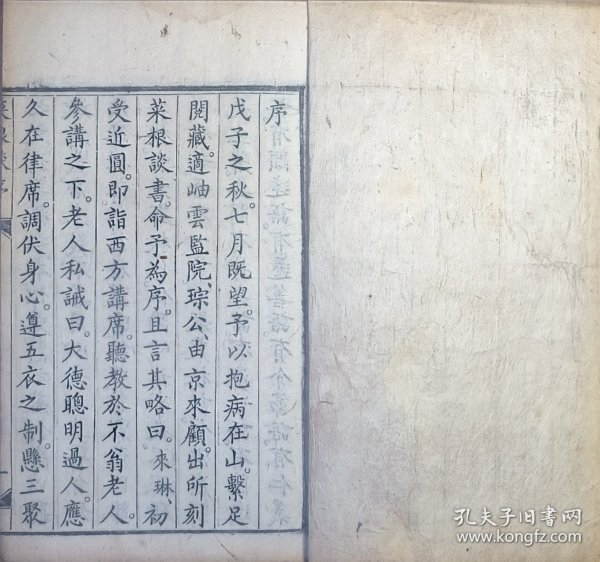 序
戊子之秋。七月既望。予以抱病在山。繫足
閱藏。適岫雲監院、琮公、由京來顧。出所刻
菜根談書。命予為序。且言其略曰。來琳、初
受近圓。即詣西方講席。聽教於不翁老人。
參講之下。老人私誡曰。大德聰明過人。應
久在律席。調伏身心。遵五衣之制。懸三聚
菜根談序
孔夫子旧书网
www.kongfz.com